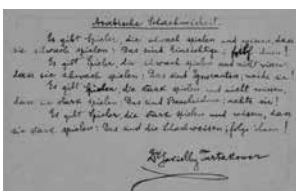 Arabische Schachweisheit.
Es gibt Spieler, die schwach spielen und wissen, dass
sie schwach spielen: Das sind Einsichtige; hilf ihnen!
Es gibt Spieler, die schwach spielen und nicht wissen,
dass sie schwach spielen: Das sind Ignoranten; sie!
Es gibt Spieler, die stark spielen und nicht wissen,
dass sie stark spielen: Das sind ; sie!
Es gibt Spieler, die stark spielen und wissen, dass
sie stark spielen: Das sind die Schachweisen; folge ihnen!
Dr Savielly Tartakower